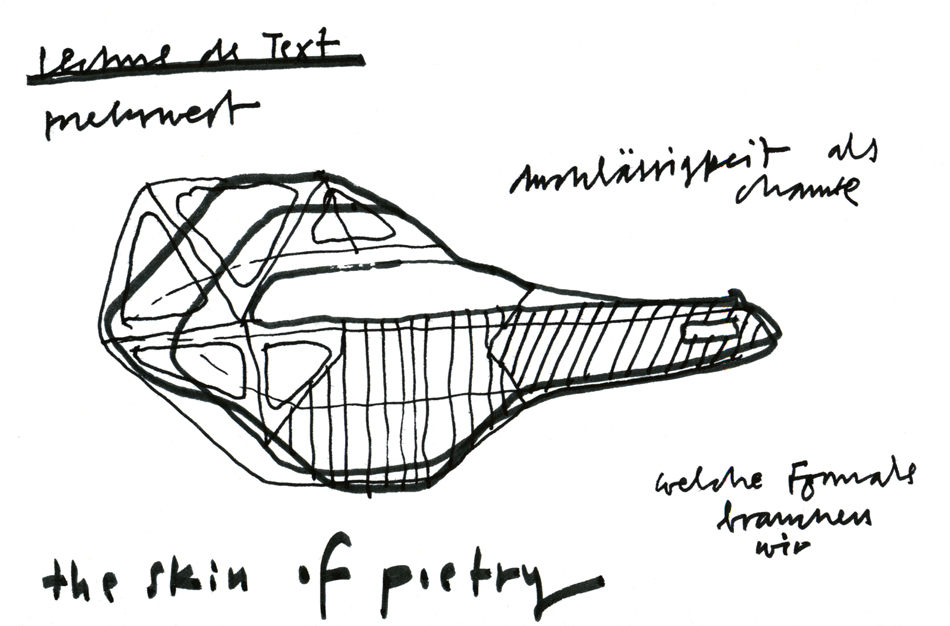 Lecture Text
mehrwert
Durchlässigkeit als
chance
welche Formate
brauchen
wir
the skin of poetry